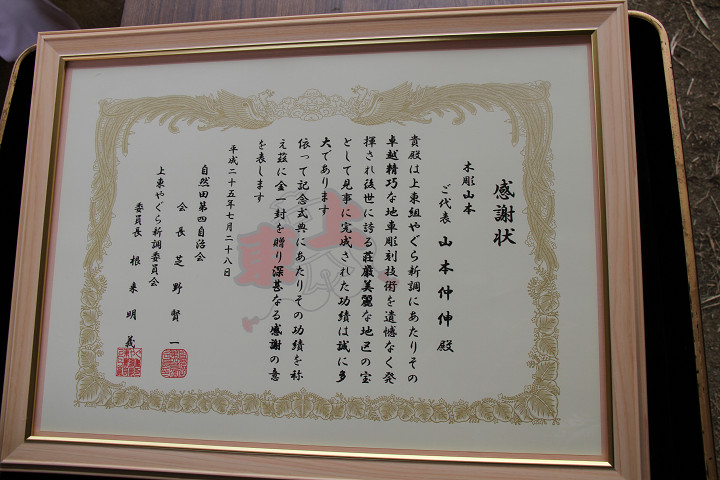 感謝状
木彫山本
ご代表 山本仲伸殿
貴殿は上東組やぐら新調にあたりその
卓越精巧な地車彫刻技術を遺憾なく発
揮され後世に誇る荘厳美麗な地区の宝
として見事に完成された功績は誠に多
大であります
依って記念式典にあたりその功績を称
え茲に金一封を贈り深甚なる感謝の意
を表します
平成二十五年七月二十八日
自然田第四自治会
会長 芝野賢一
上東やぐら新調委員会
委員長 根来明義
上東